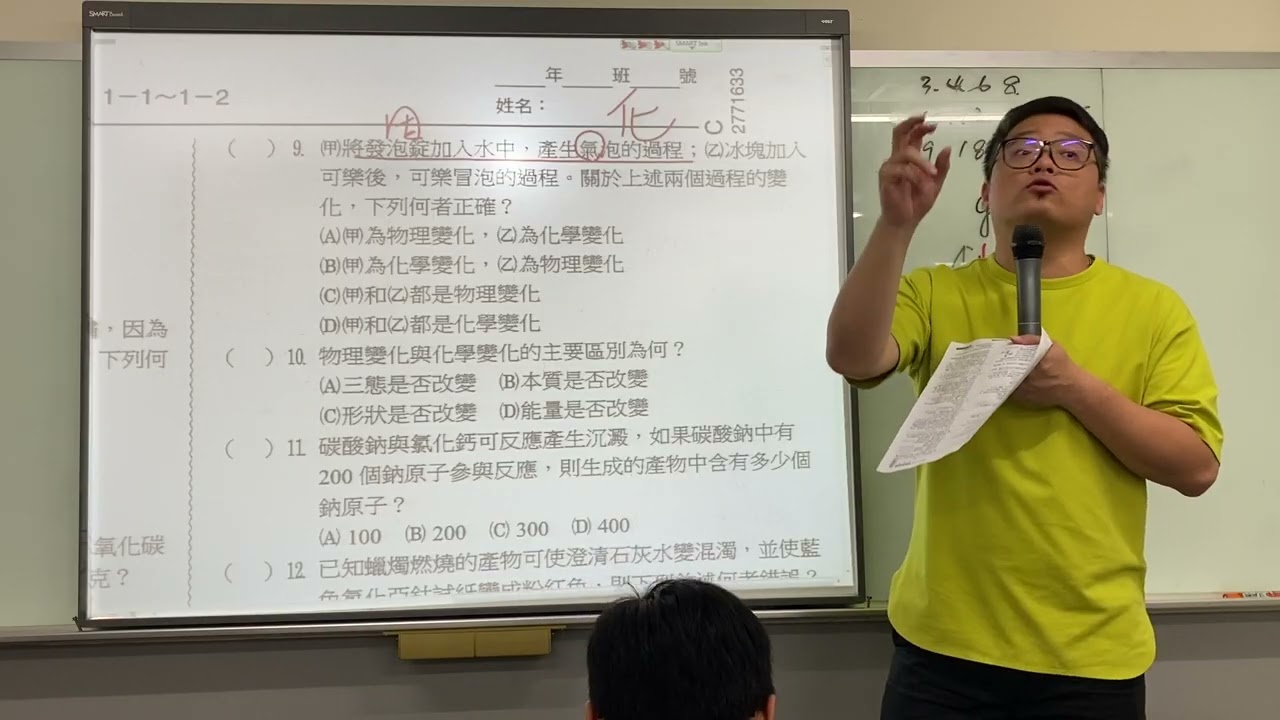 SMART Board
SMART Ink
____年____班____號
1－1～1－2
姓名：
化
固
C
2771633
（　）9. ㈙將發泡錠加入水中，產生氣泡的過程；㈚冰塊加入
可樂後，可樂冒泡的過程。關於上述兩個過程的變
化，下列何者正確？
(A)㈙為物理變化，㈚為化學變化
(B)㈙為化學變化，㈚為物理變化
(C)㈙和㈚都是物理變化
(D)㈙和㈚都是化學變化
（　）10. 物理變化與化學變化的主要區別為何？
(A)三態是否改變　(B)本質是否改變
(C)形狀是否改變　(D)能量是否改變
（　）11. 碳酸鈉與氯化鈣可反應產生沉澱，如果碳酸鈉中有
200 個鈉原子參與反應，則生成的產物中含有多少個
鈉原子？
(A) 100　(B) 200　(C) 300　(D) 400
（　）12. 已知蠟燭燃燒的產物可使澄清石灰水變混濁，並使藍
色氯化亞鈷試紙變成粉紅色，則下列敘述何者錯誤？
，因為
下列何
氧化碳
克？
3.4.6 8.
9 18